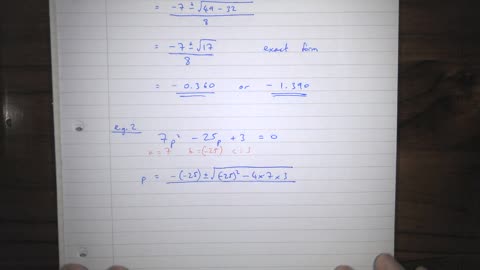 = -7 ± √49 - 32
8
= -7 ± √17
8
exact form
= - 0.360 or - 1.390
e.g. 2
7p² - 25p + 3 = 0
a = 7 b = (-25) c = 3
p = -(-25) ± √(-25)² - 4 x 7 x 3